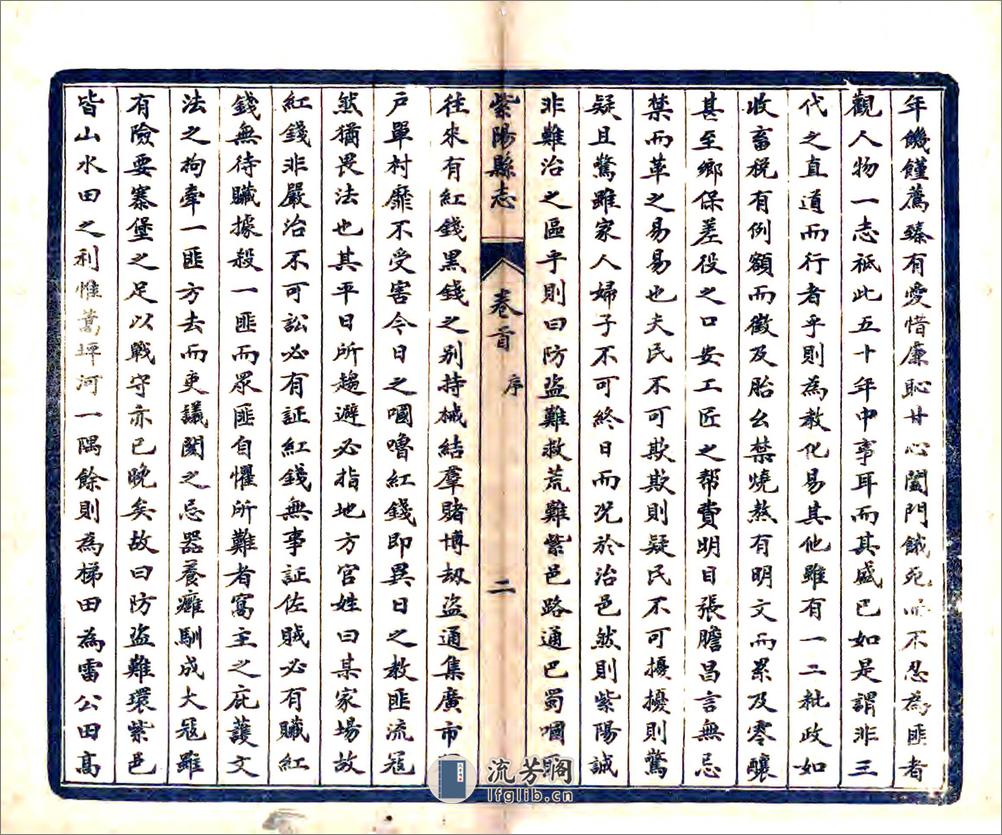 年饑饉薦臻有愛惜廉恥甘心闔門餓死而不忍為匪者
觀人物一志祇此五十年中事耳而其盛已如是謂非三
代之直道而行者乎則為教化易其他雖有一二秕政如
收畜稅有例額而徵及胎幺禁燒熬有明文而累及零釀
甚至鄉保差役之口安工匠之幫費明目張膽昌言無忌
禁而革之易易也夫民不可欺欺則疑民不可擾擾則驚
疑且驚雖家人婦子不可終日而况於治邑然則紫陽誠
非難治之區乎則曰防盜難救荒難紫邑路通巴蜀嘓
紫陽縣志 卷首 序 二
往來有紅錢黑錢之别持械結羣賭博刼盜通集廣市
戶單村靡不受害今日之嘓嚕紅錢即異日之教匪流寇
然猶畏法也其平日所趨避必指地方官姓曰某家場故
紅錢非嚴治不可訟必有証紅錢無事証佐賊必有贓紅
錢無待贓據殺一匪而眾匪自懼所難者窩主之庇護文
法之拘牽一匪方去而更議閡之忌器養癰馴成大寇雖
有險要寨堡之足以戰守亦已晚矣故曰防盜難環紫邑
皆山水田之利惟蒿坪河一隅餘則為梯田為雷公田高
流芳閣
lfglib.cn